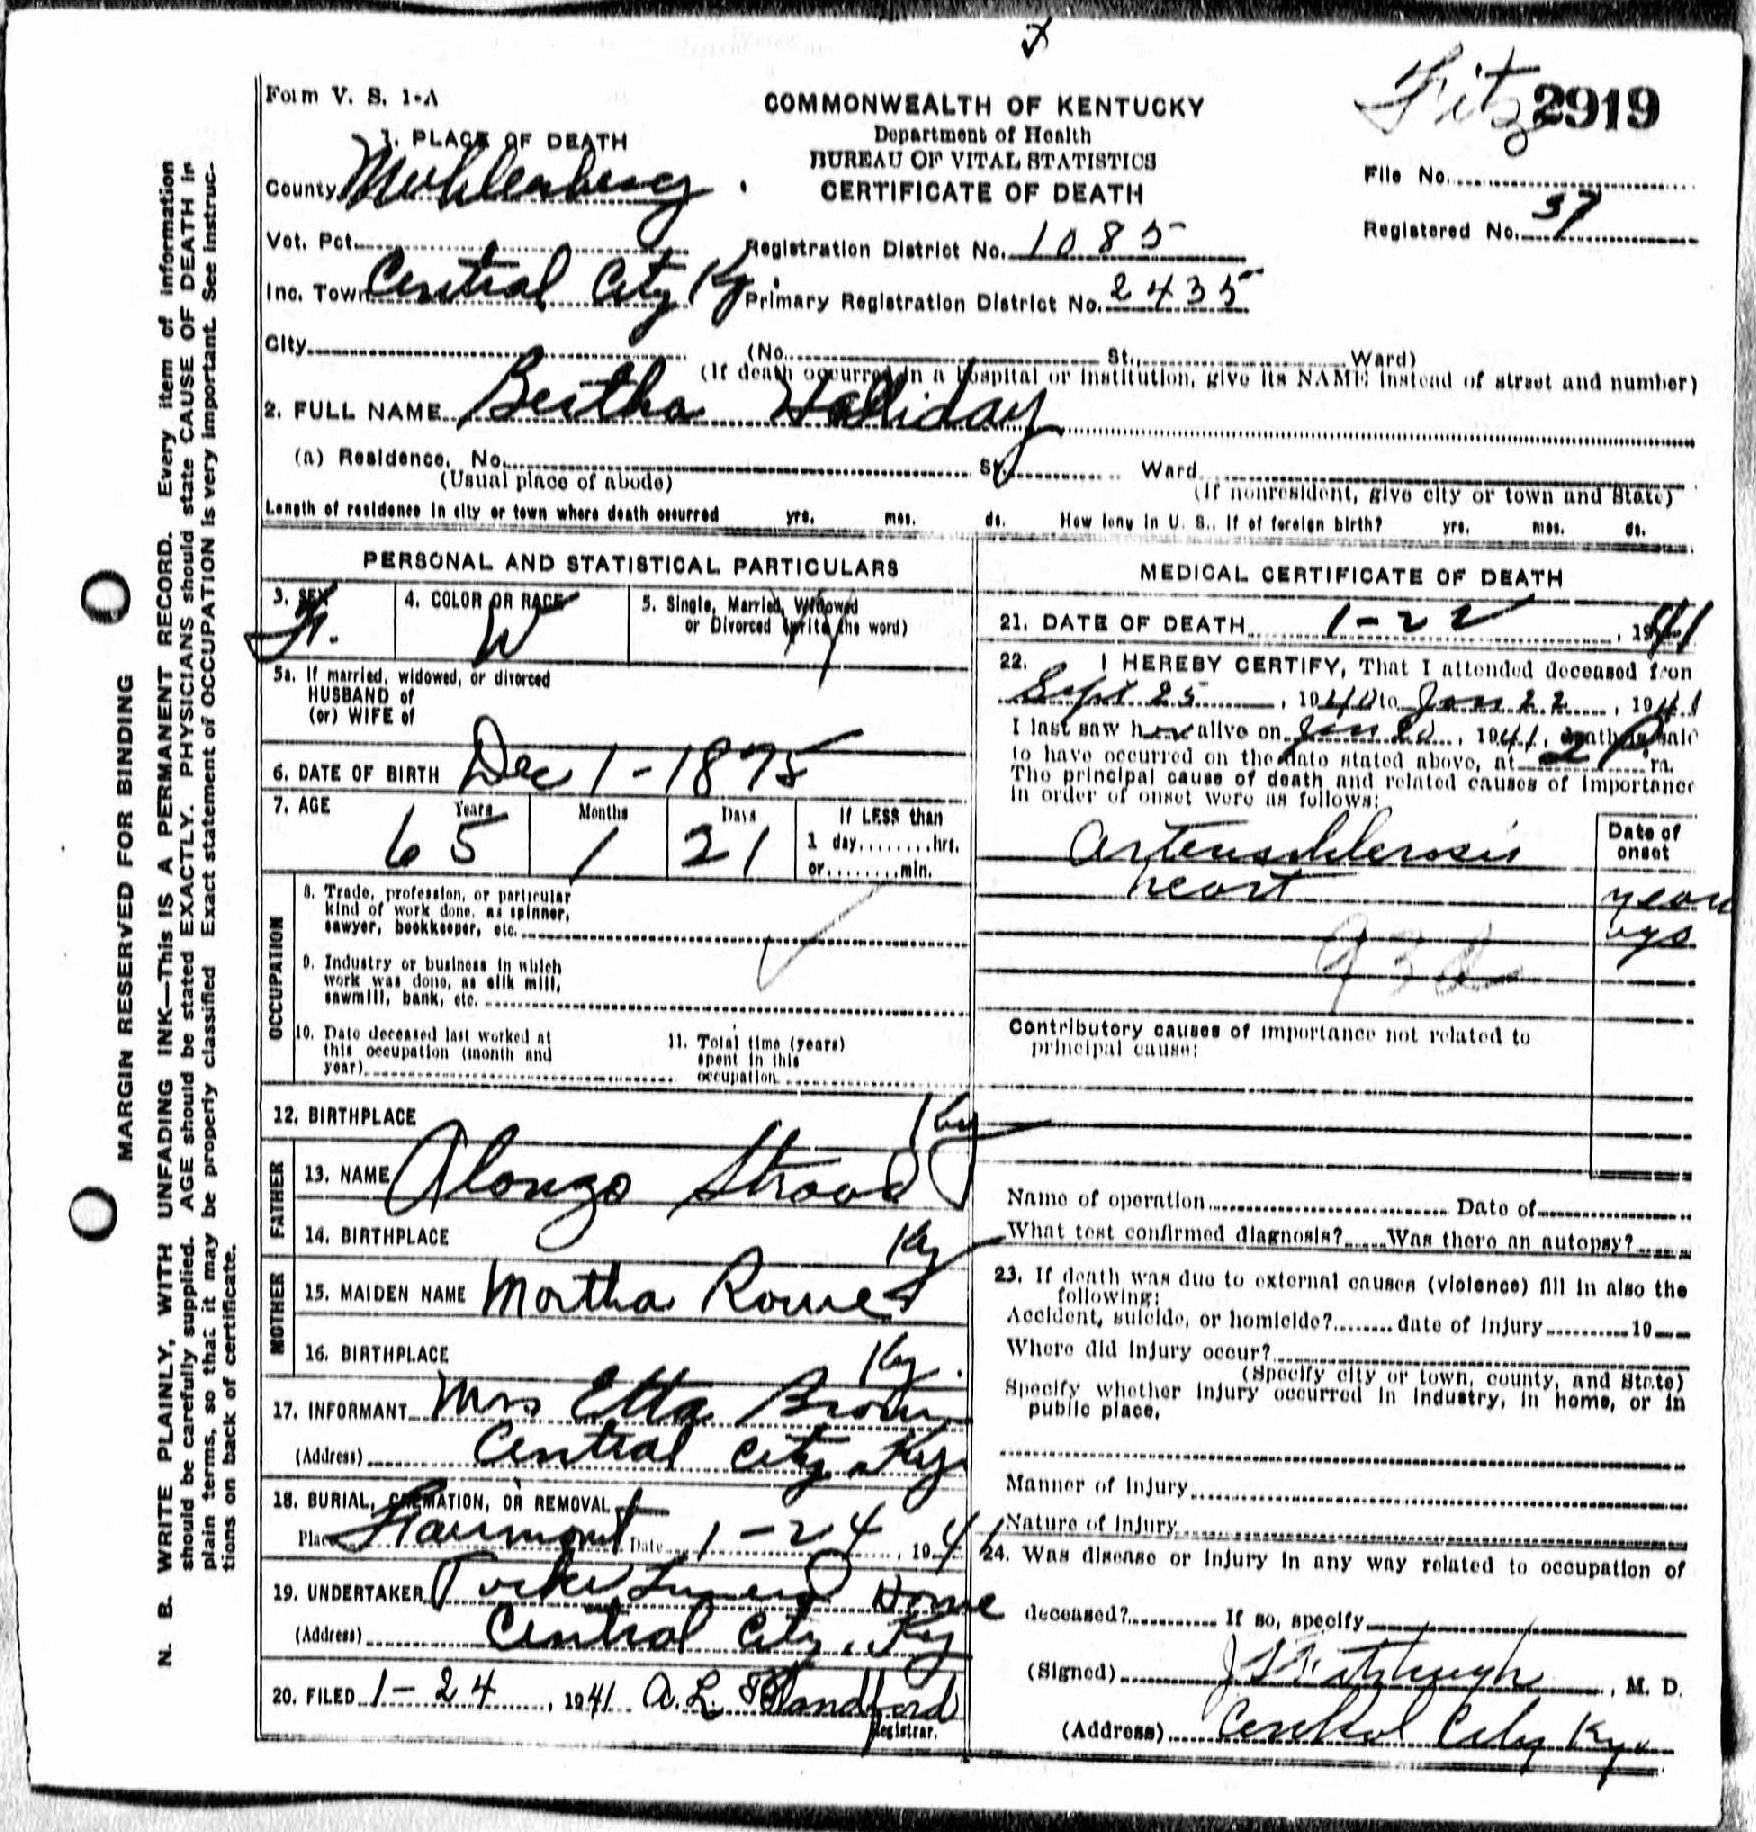 Fitz 2919
Form V. S. 1-A
COMMONWEALTH OF KENTUCKY
Department of Health
BUREAU OF VITAL STATISTICS
CERTIFICATE OF DEATH
File No.
Registered No. 37
1. PLACE OF DEATH
County Muhlenberg
Vot. Pct.
Registration District No. 1085
Inc. Town Central City Ky.
Primary Registration District No. 2435
City (No. St. Ward)
(If death occurred in a hospital or institution, give its NAME instead of street and number)
2. FULL NAME Bertha Halliday
(a) Residence. No. St. Ward
(Usual place of abode) (If nonresident, give city or town and State)
Length of residence in city or town where death occurred yrs. mos. ds. How long in U. S., if of foreign birth? yrs. mos. ds.
PERSONAL AND STATISTICAL PARTICULARS
3. SEX F.
4. COLOR OR RACE W
5. Single, Married, Widowed
or Divorced (write the word)
5a. If married, widowed, or divorced
HUSBAND of
(or) WIFE of
6. DATE OF BIRTH Dec 1 - 1875
7. AGE Years Months Days If LESS than
65 1 21 1 day........hrs.
or........min.
OCCUPATION
8. Trade, profession, or particular
kind of work done, as spinner,
sawyer, bookkeeper, etc.
9. Industry or business in which
work was done, as silk mill,
sawmill, bank, etc.
10. Date deceased last worked at
this occupation (month and
year)
11. Total time (years)
spent in this
occupation
12. BIRTHPLACE Ky
FATHER
13. NAME Alonzo Strood
14. BIRTHPLACE Ky
MOTHER
15. MAIDEN NAME Martha Rowe
16. BIRTHPLACE Ky.
17. INFORMANT Mrs Etta Brown
(Address) Central City Ky.
18. BURIAL, CREMATION, OR REMOVAL
Place Fairmount Date 1-24, 1941
19. UNDERTAKER Tucker Funeral Home
(Address) Central City, Ky
20. FILED 1-24, 1941 A. L. Standford
Registrar.
MEDICAL CERTIFICATE OF DEATH
21. DATE OF DEATH 1-22, 1941
22. I HEREBY CERTIFY, That I attended deceased from
Sept 25, 1940 to Jan 22, 1941
I last saw her alive on Jan 20, 1941, death is said
to have occurred on the date stated above, at 2 P m.
The principal cause of death and related causes of importance
in order of onset were as follows:
Date of
onset
Arteriosclerosis
heart years
ago
Contributory causes of importance not related to
principal cause:
Name of operation Date of
What test confirmed diagnosis? Was there an autopsy?
23. If death was due to external causes (violence) fill in also the
following:
Accident, suicide, or homicide? date of injury 19
Where did injury occur?
(Specify city or town, county, and State)
Specify whether injury occurred in industry, in home, or in
public place.
Manner of Injury
Nature of Injury
24. Was disease or injury in any way related to occupation of
deceased? If so, specify
(Signed) J S Fitzhugh, M. D.
(Address) Central City Ky.
MARGIN RESERVED FOR BINDING
N. B. WRITE PLAINLY, WITH UNFADING INK—THIS IS A PERMANENT RECORD. Every item of information
should be carefully supplied. AGE should be stated EXACTLY. PHYSICIANS should state CAUSE OF DEATH in
plain terms, so that it may be properly classified. Exact statement of OCCUPATION is very important. See instruc-
tions on back of certificate.